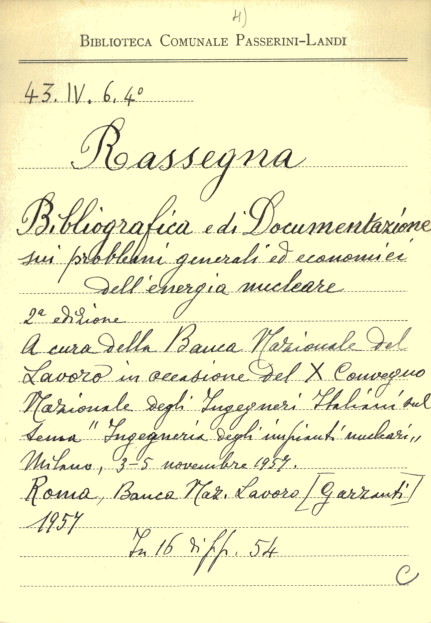 4)
BIBLIOTECA COMUNALE PASSERINI-LANDI
43. IV. 6. 4°
Rassegna
Bibliografica e di Documentazione
sui problemi generali ed economici
dell'energia nucleare
2ª edizione
A cura della Banca Nazionale del
Lavoro in occasione del X Convegno
Nazionale degli Ingegneri Italiani sul
tema "Ingegneria degli impianti nucleari„
Milano, 3-5 novembre 1957.
Roma, Banca Naz. Lavoro [Garzanti]
1957
In 16 di pp. 54
C